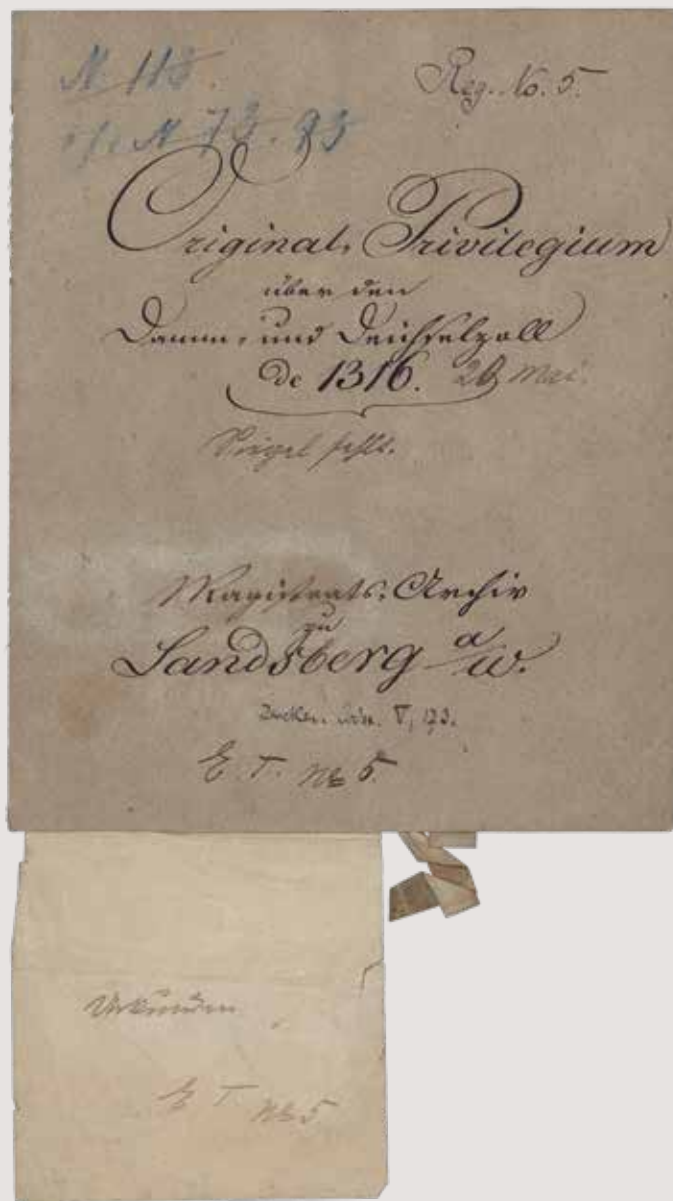 N 118.
N 73. 93
Reg. No. 5.
Original-Privilegium
über den
Damm- und Deichselzoll
de 1316. 20 Mai.
Siegel fehlt.
Magistrats-Archiv
zu
Landsberg a/W.
V, 173.
E. T. No 5.
Urkunden
E T No 5